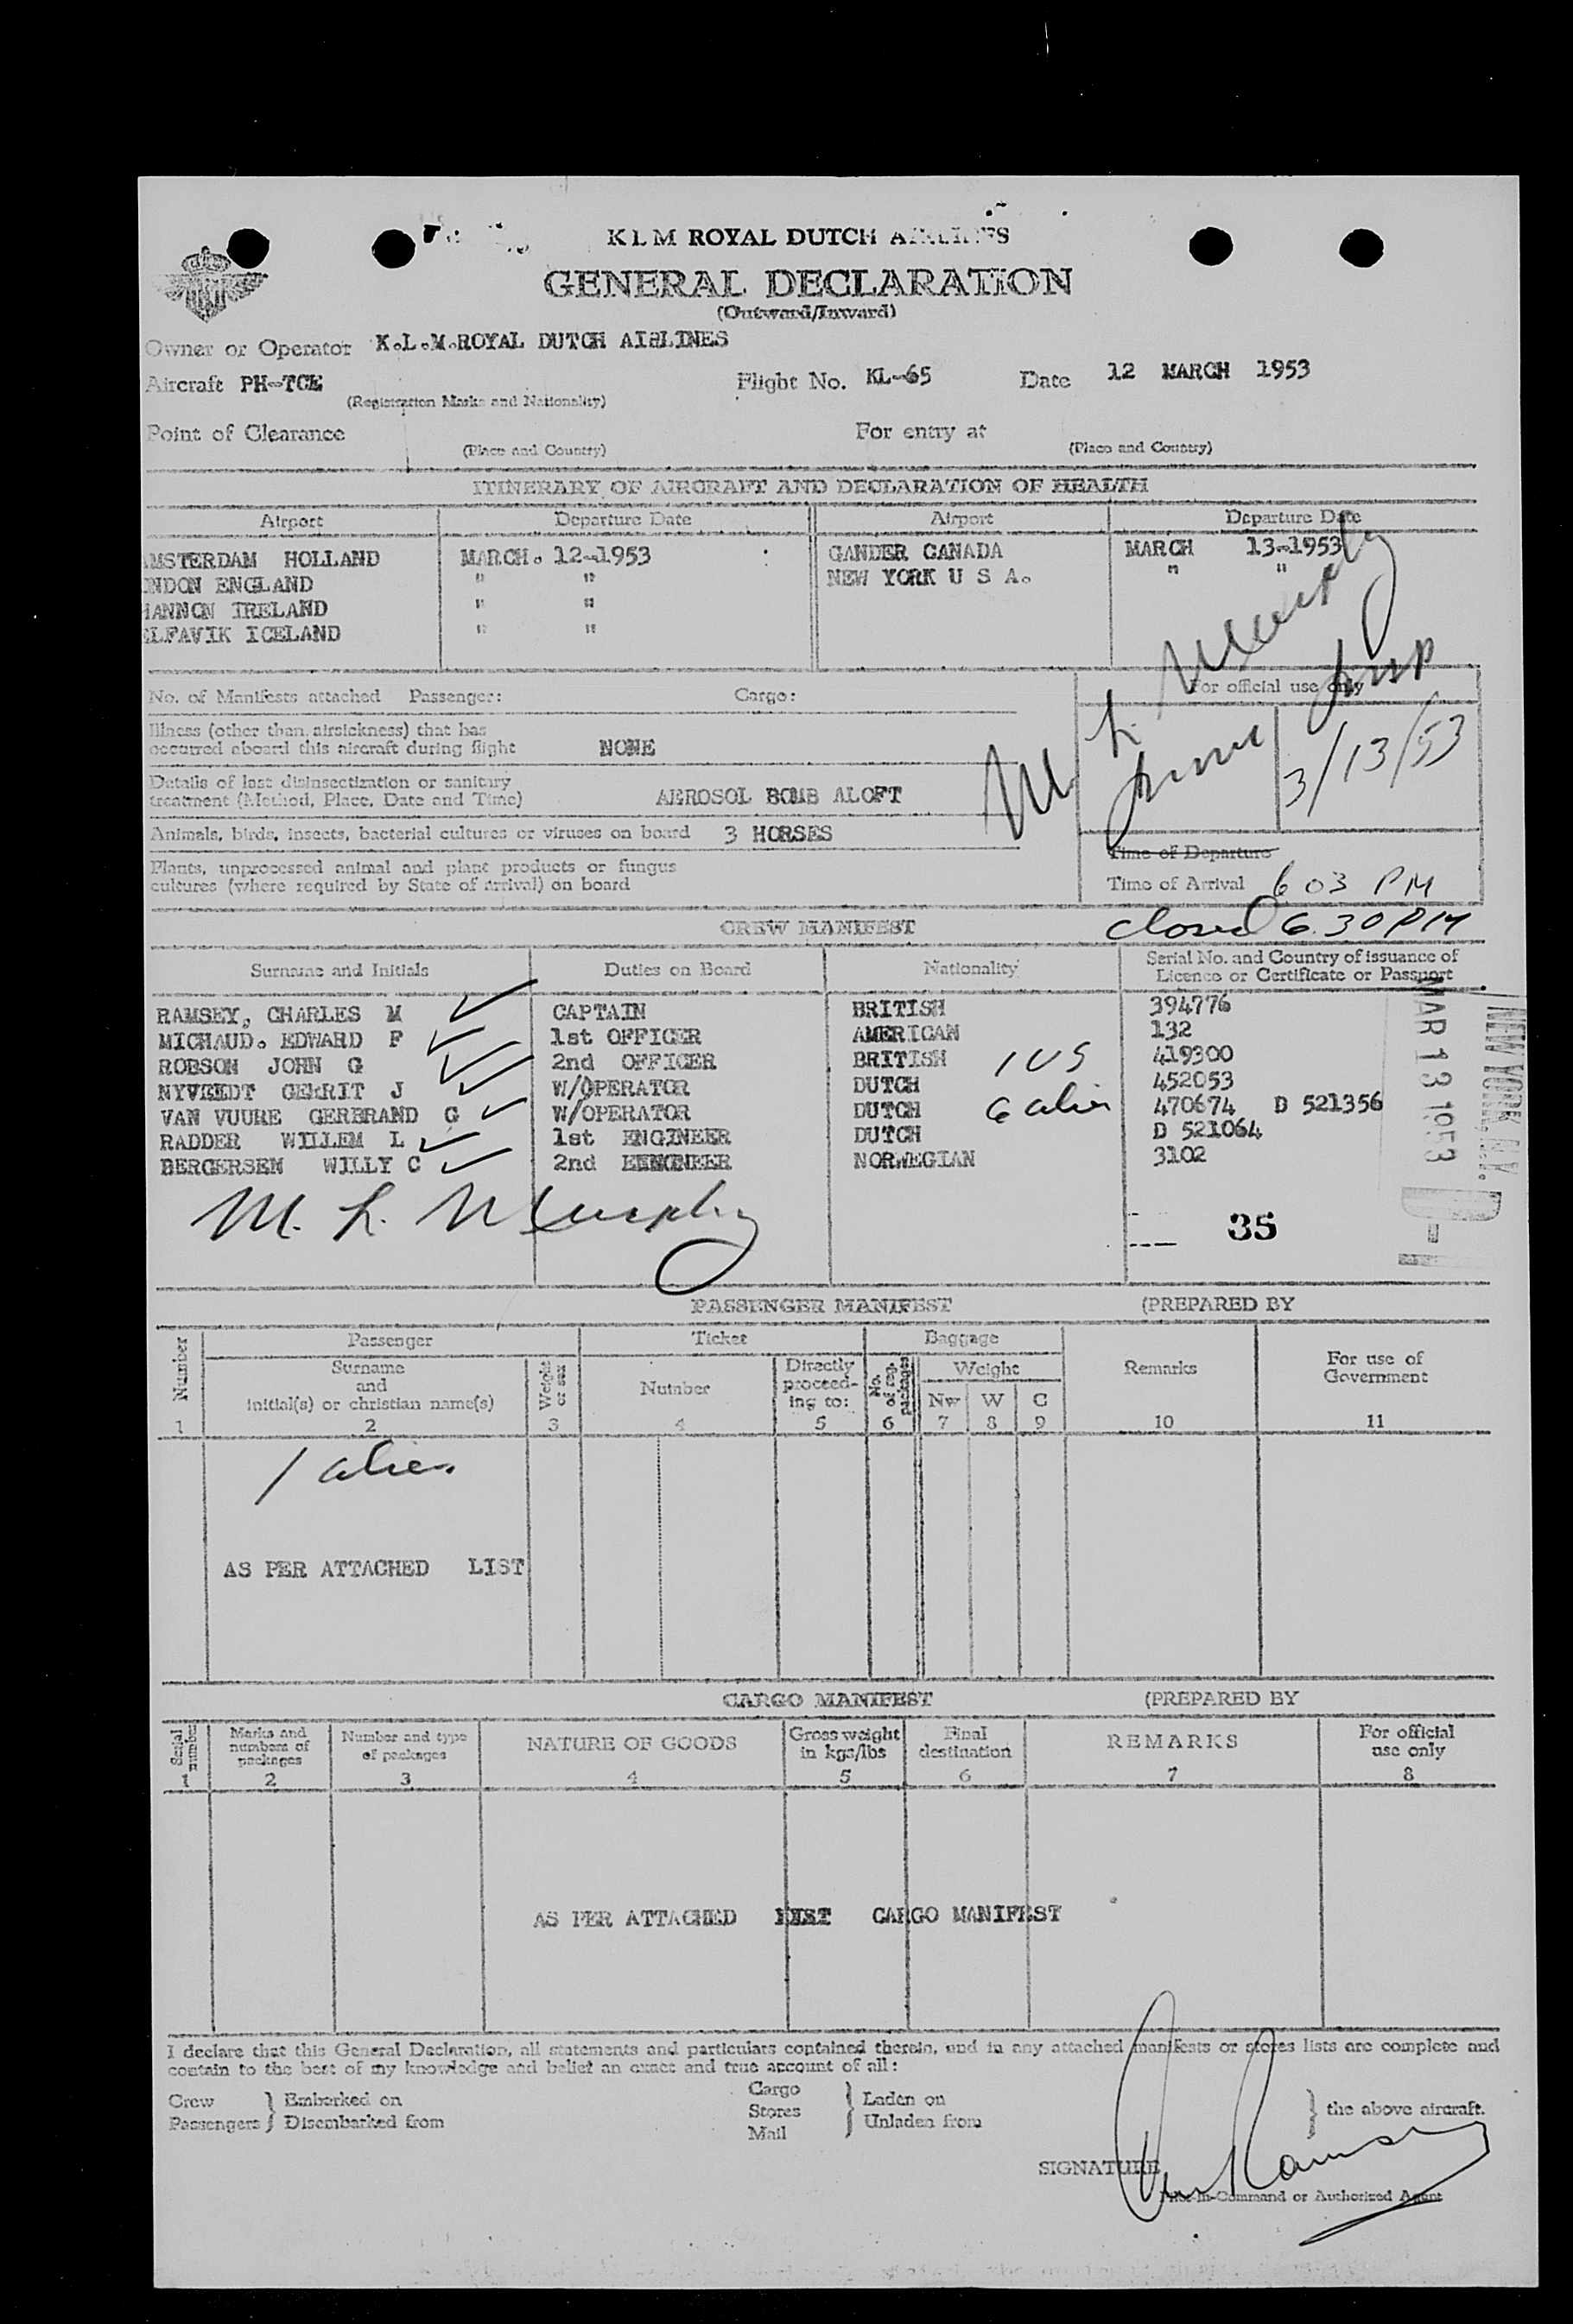 KLM ROYAL DUTCH AIRLINES
GENERAL DECLARATION
(Outward/Inward)
Owner or Operator K.L.M.ROYAL DUTCH AIRLINES
Aircraft PH-TCE Flight No. KL-65 Date 12 MARCH 1953
(Registration Marks and Nationality)
Point of Clearance For entry at
(Place and Country) (Place and Country)
ITINERARY OF AIRCRAFT AND DECLARATION OF HEALTH
Airport Departure Date Airport Departure Date
MSTERDAM HOLLAND MARCH. 12-1953 : GANDER CANADA MARCH 13-1953
NDON ENGLAND " " NEW YORK U S A. " "
HANNON IRELAND " "
ELFAVIK ICELAND " "
M. L. Murphy
Immr Insp
No. of Manifests attached Passenger: Cargo: For official use only
Illness (other than airsickness) that has
occurred aboard this aircraft during flight NONE
3/13/53
Details of last disinsectization or sanitary
treatment (Method, Place, Date and Time) AEROSOL BOMB ALOFT
Animals, birds, insects, bacterial cultures or viruses on board 3 HORSES
Time of Departure
Plants, unprocessed animal and plant products or fungus
cultures (where required by State of Arrival) on board
Time of Arrival 6 03 PM
CREW MANIFEST closed 6.30 PM
Surname and Initials Duties on Board Nationality Serial No. and Country of issuance of
Licence or Certificate or Passport
RAMSEY, CHARLES M CAPTAIN BRITISH 394776
MICHAUD. EDWARD F 1st OFFICER AMERICAN 132
ROBSON JOHN G 2nd OFFICER BRITISH 1 US 419300
NYVELDT GERRIT J W/OPERATOR DUTCH 452053
VAN VUURE GERBRAND G W/OPERATOR DUTCH 6 alien 470674 D 521356
RADDER WILLEM L 1st ENGINEER DUTCH D 521064
BERGERSEN WILLY C 2nd ENGINEER NORWEGIAN 3102
NEW YORK, N.Y.
MAR 13 1953
M. L. Murphy
35
PASSENGER MANIFEST (PREPARED BY
Number Passenger Ticket Baggage Remarks For use of
Government
Surname
and
initial(s) or christian name(s) Weight
or sex Number Directly
proceed-
ing to: No.
of reg.
packages Weight
Nw W C
1 2 3 4 5 6 7 8 9 10 11
1 alien
AS PER ATTACHED LIST
CARGO MANIFEST (PREPARED BY
Serial
number Marks and
numbers of
packages Number and type
of packages NATURE OF GOODS Gross weight
in kgs/lbs Final
destination REMARKS For official
use only
1 2 3 4 5 6 7 8
AS PER ATTACHED CARGO MANIFEST
I declare that this General Declaration, all statements and particulars contained therein, and in any attached manifests or stores lists are complete and
contain to the best of my knowledge and belief an exact and true account of all:
Crew Embarked on Cargo Laden on
Passengers Disembarked from Stores Unladen from the above aircraft.
Mail
SIGNATURE
Pilot-in-Command or Authorized Agent